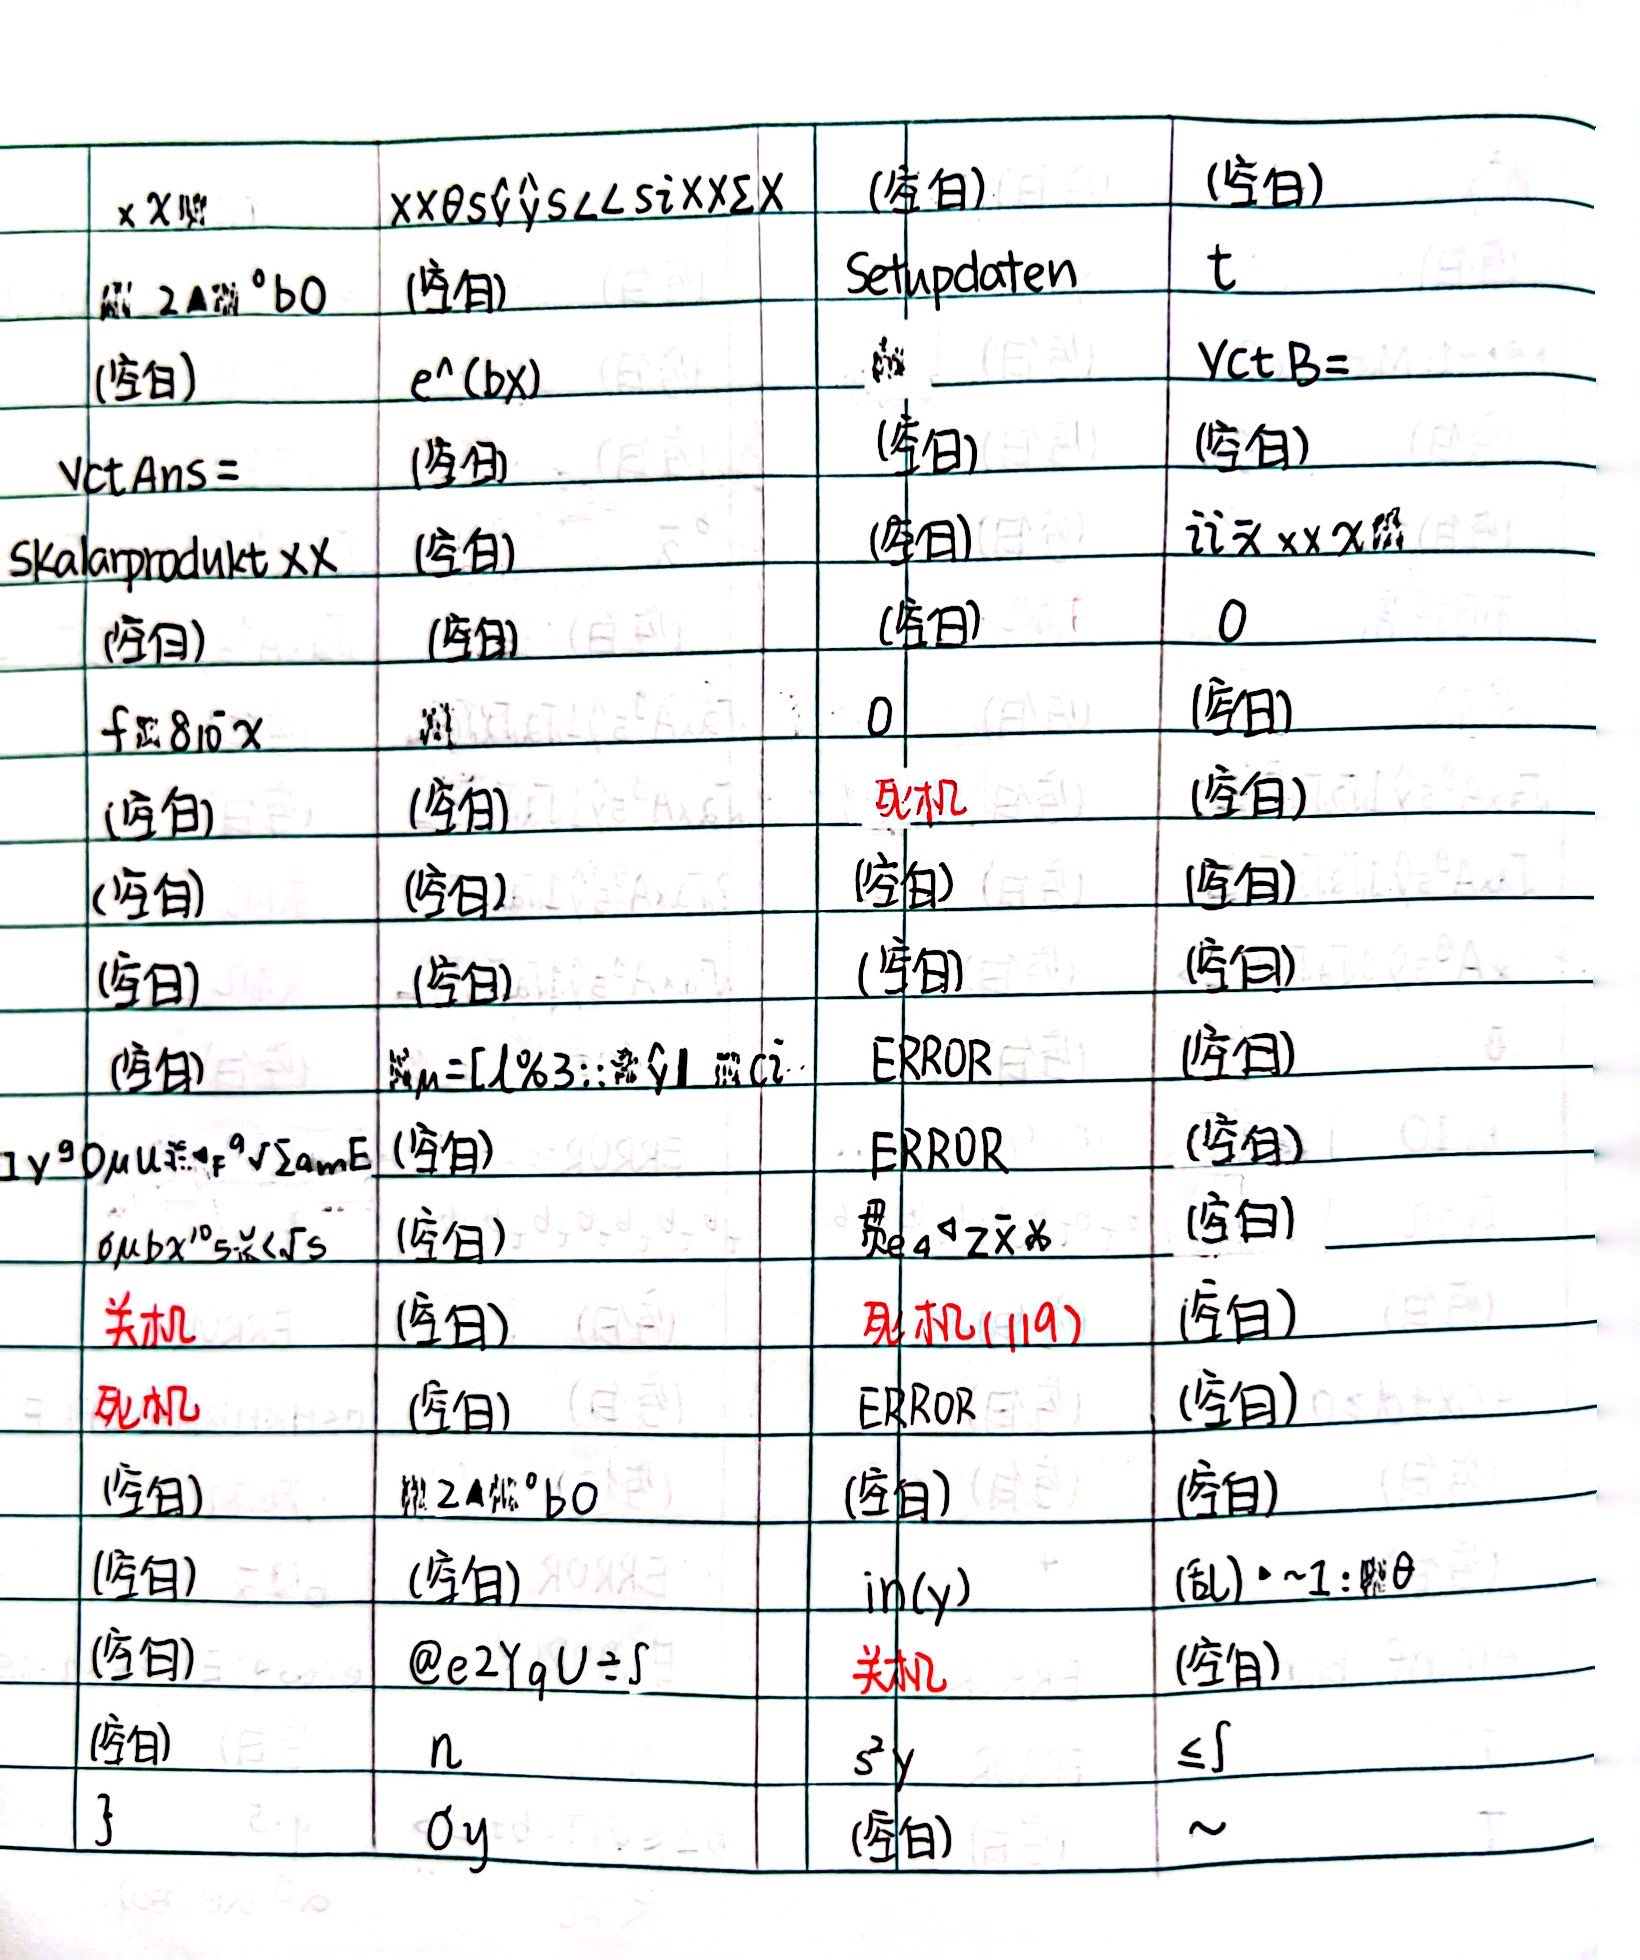 x x xxθsŷŷs∠∠sixxΣx (空白) (空白)
2▲ °b0 (空白) Setupdaten t
(空白) e^(bx) VctB=
VctAns= (空白) (空白) (空白)
Skalarprodukt xx (空白) (空白) ii x̄ xx x
(空白) (空白) (空白) 0
f 8 10 x 0 (空白)
(空白) (空白) 死机 (空白)
(空白) (空白) (空白) (空白)
(空白) (空白) (空白) (空白)
(空白) μ=[1%3:: ŷ] ci (空白) ERROR (空白)
(空白) ERROR (空白)
(空白) (空白)
关机 (空白) 死机(119) (空白)
死机 (空白) ERROR (空白)
(空白) 2▲ °b0 (空白) (空白)
(空白) (空白) in(y) (乱) ~1: θ
(空白) @e2YqU÷∫ 关机 (空白)
(空白) n s²y ≤∫
} σy (空白) ~